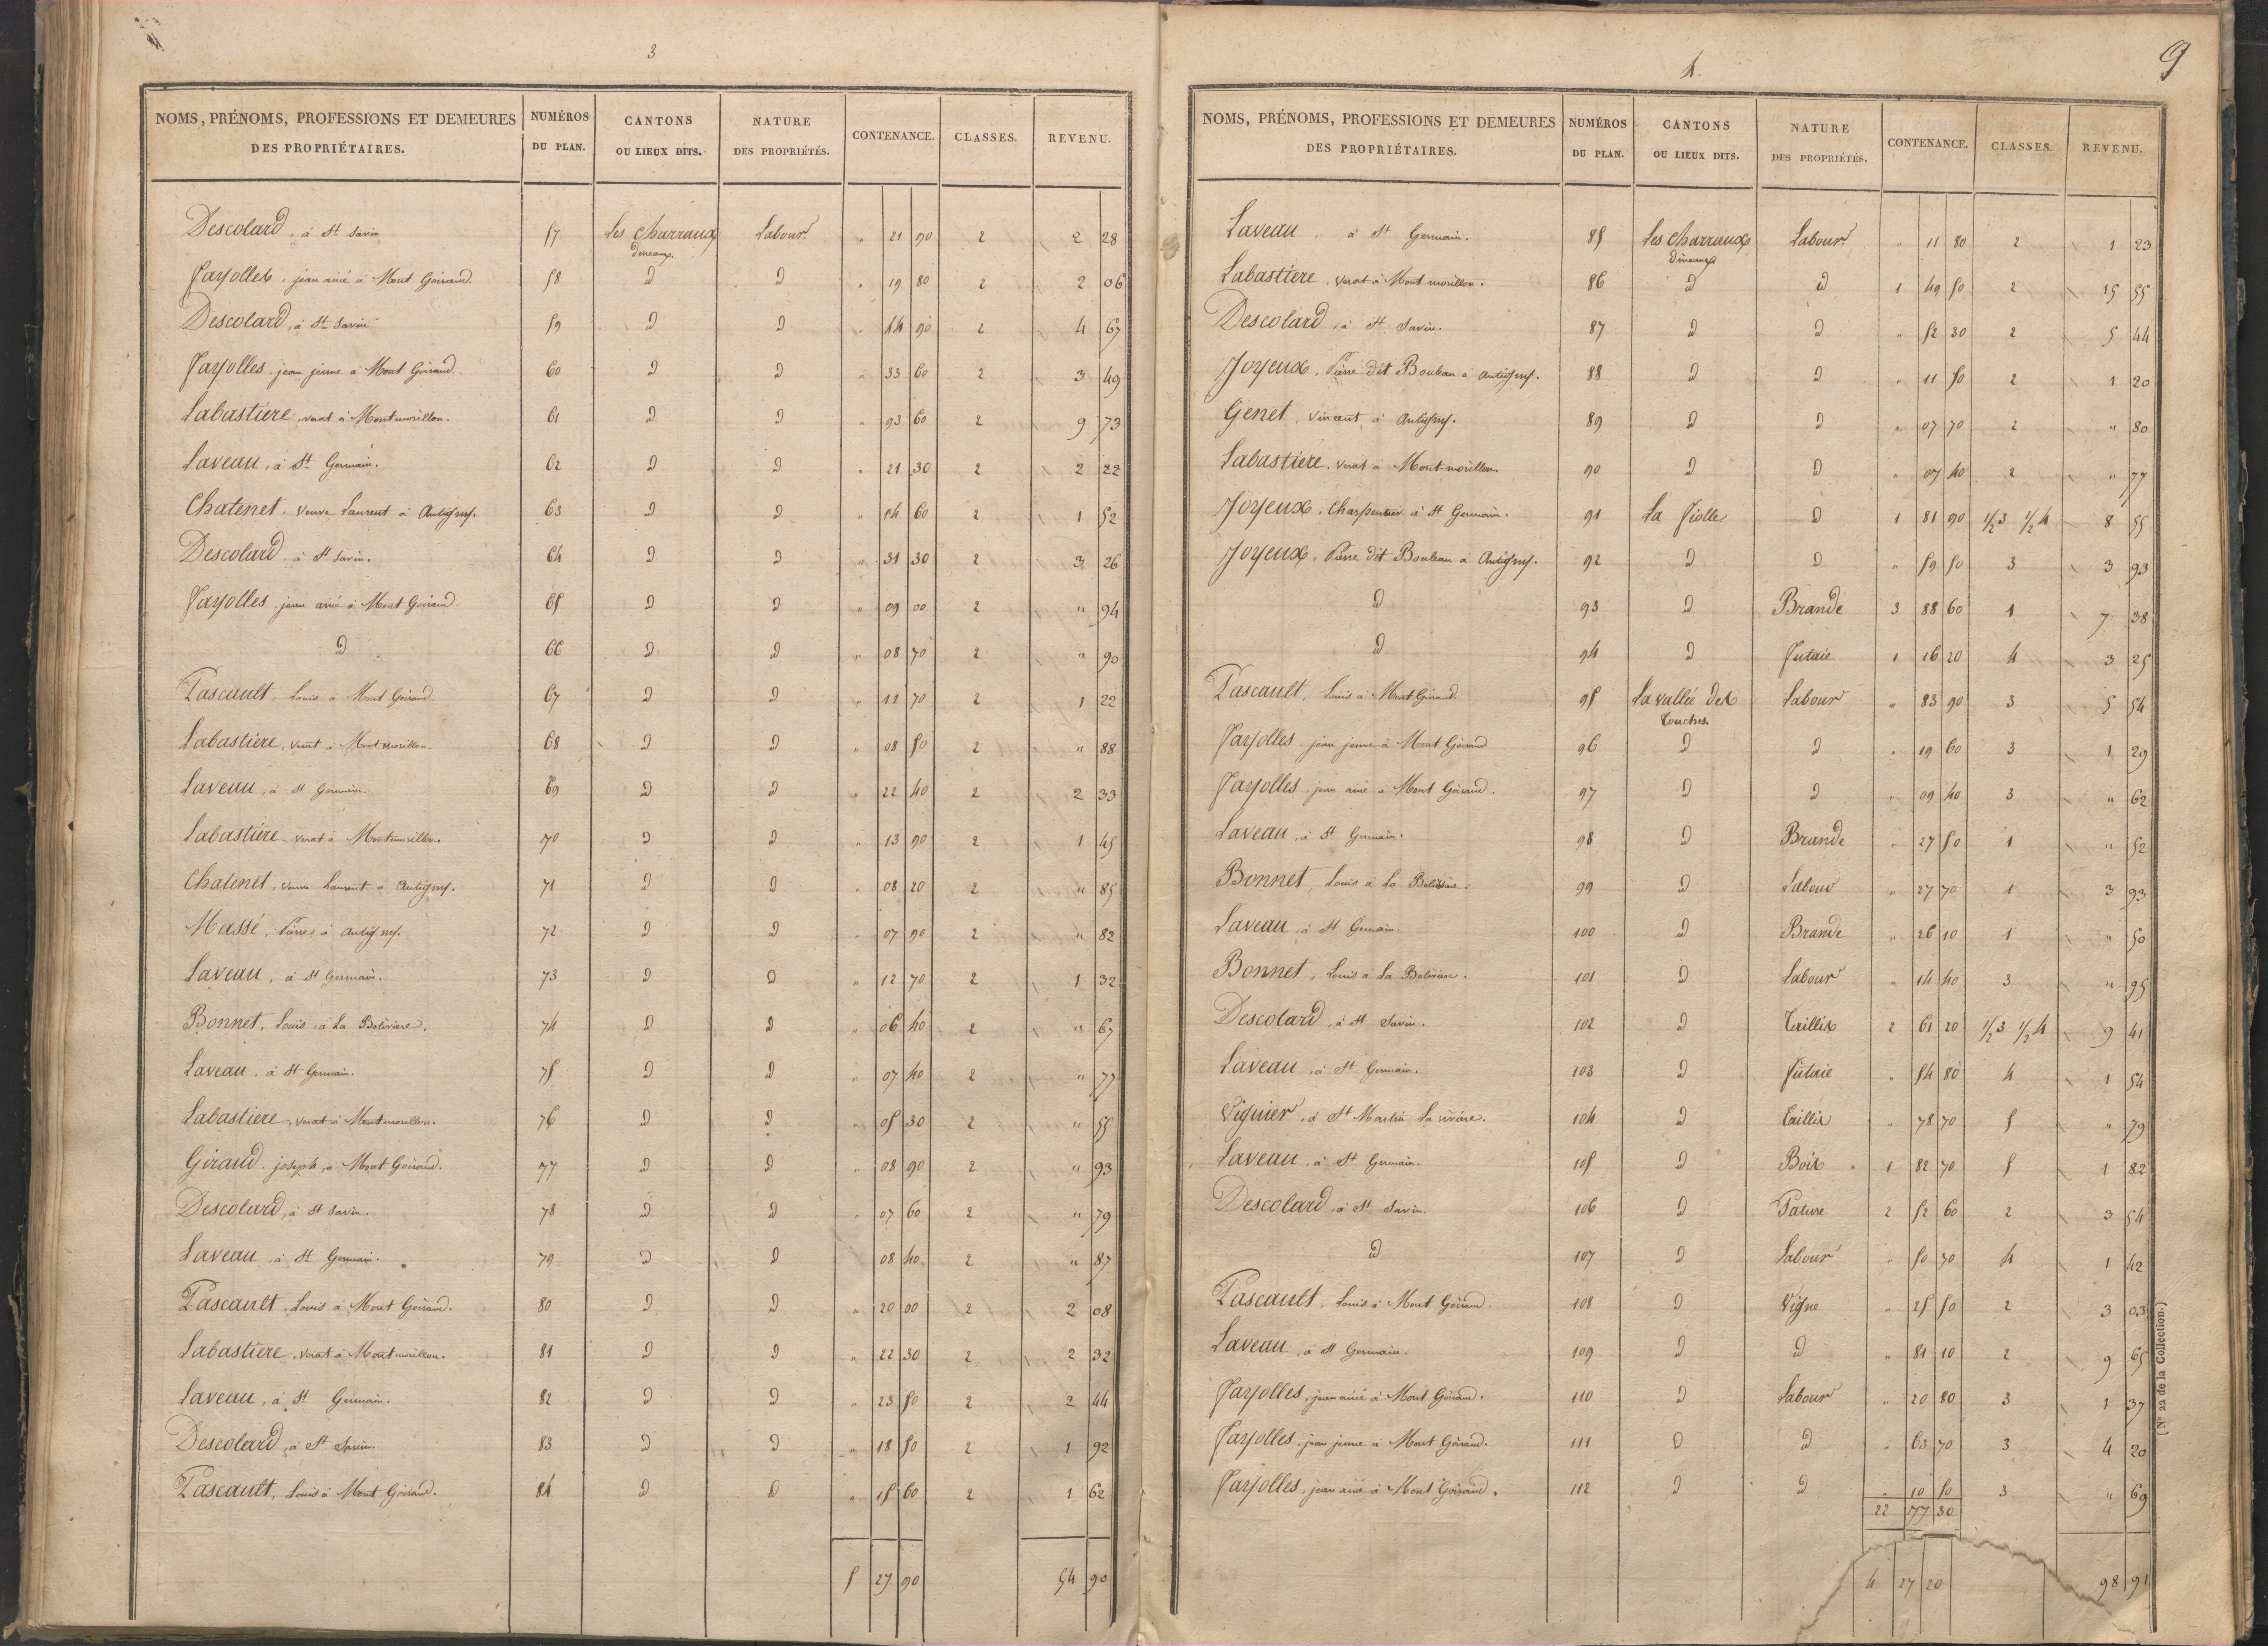 3
NOMS, PRÉNOMS, PROFESSIONS ET DEMEURES DES PROPRIÉTAIRES. NUMÉROS DU PLAN. CANTONS OU LIEUX DITS. NATURE DES PROPRIÉTÉS. CONTENANCE. CLASSES. REVENU.
Descolard, à St Savin 57 Les Charraux Labour " 21 90 2 2 28
Fayolles, jean ainé à Mont Goirand. 58 d d " 19 80 2 2 06
Descolard, à St Savin 59 d d " 44 90 2 4 67
Fayolles, jean jeune à Mont Goirand. 60 d d " 33 60 2 3 49
Labastiere, verat à Montmorillon. 61 d d " 93 60 2 9 73
Laveau, à St Germain. 62 d d " 21 30 2 2 22
Chatenet, veuve Laurent à Antigny. 63 d d " 14 60 2 1 52
Descolard à St Savin. 64 d d " 31 30 2 3 26
Fayolles, jean ainé à Mont Goirand 65 d d " 09 00 2 " 94
d 66 d d " 08 70 2 " 90
Pascault, Louis à Mont Goirand. 67 d d " 11 70 2 1 22
Labastiere, verat à Montmorillon. 68 d d " 08 50 2 " 88
Laveau, à St Germain. 69 d d " 22 40 2 2 33
Labastiere, verat à Montmorillon. 70 d d " 13 90 2 1 45
Chatenet, veuve Laurent à Antigny. 71 d d " 08 20 2 " 85
Massé, Pierre à Antigny. 72 d d " 07 90 2 " 82
Laveau, à St Germain. 73 d d " 12 70 2 1 32
Bonnet, Louis à La Boliviere. 74 d d " 06 40 2 " 67
Laveau, à St Germain. 75 d d " 07 40 2 " 77
Labastiere, verat à Montmorillon. 76 d d " 05 30 2 " 55
Giraud, joseph, à Mont Goirand. 77 d d " 08 90 2 " 93
Descolard, à St Savin. 78 d d " 07 60 2 " 79
Laveau, à St Germain. 79 d d 08 40 2 " 87
Pascault, Louis à Mont Goirand. 80 d d " 20 00 2 2 08
Labastiere, verat à Montmorillon. 81 d d " 22 30 2 2 32
Laveau, à St Germain. 82 d d " 23 50 2 2 44
Descolard, à St Savin. 83 d d " 18 50 2 1 92
Pascault, Louis à Mont Goirand. 84 d d " 15 60 2 1 62
5 27 90 54 90
4.
9
NOMS, PRÉNOMS, PROFESSIONS ET DEMEURES DES PROPRIÉTAIRES. NUMÉROS DU PLAN. CANTONS OU LIEUX DITS. NATURE DES PROPRIÉTÉS. CONTENANCE. CLASSES. REVENU.
Laveau, à St Germain. 85 Les Charraux Labour " 11 80 2 1 23
Labastiere, verat à Montmorillon. 86 d d 1 49 50 2 15 55
Descolard, à St Savin. 87 d d " 52 30 2 5 44
Joyeux, Pierre dit Bouleau à Antigny. 88 d d " 11 50 2 1 20
Genet, Vincent, à Antigny. 89 d d " 07 70 2 " 80
Labastiere, verat à Montmorillon. 90 d d " 07 40 2 " 77
Joyeux, Charpentier à St Germain. 91 La Fiolle d 1 81 90 1/2 3 1/2 4 8 55
Joyeux, Pierre dit Bouleau à Antigny. 92 d d " 59 50 3 3 93
d 93 d Brande 3 88 60 1 7 38
d 94 d Futaie 1 16 20 4 3 25
Pascault, Louis à Mont Goirand. 95 La vallée des Touches. Labour " 83 90 3 5 54
Fayolles, jean jeune à Mont Goirand 96 d d " 19 60 3 1 29
Fayolles, jean ainé à Mont Goirand. 97 d d " 09 40 3 " 62
Laveau, à St Germain. 98 d Brande " 27 50 1 " 52
Bonnet, Louis à La Boliviere. 99 d Labour " 27 70 1 3 93
Laveau, à St Germain. 100 d Brande " 26 10 1 " 50
Bonnet, Louis à La Boliviere. 101 d Labour " 14 40 3 " 95
Descolard, à St Savin. 102 d Taillis 2 61 20 1/2 3 1/2 4 9 41
Laveau, à St Germain. 103 d Futaie " 54 80 4 1 54
Viguier, à St Martin La rivière. 104 d Taillis " 78 70 5 " 79
Laveau, à St Germain. 105 d Bois 1 82 70 5 1 82
Descolard, à St Savin. 106 d Pature 2 52 60 2 3 54
d 107 d Labour " 50 70 4 1 42
Pascault, Louis à Mont Goirand. 108 d Vigne " 25 50 2 3 03
Laveau, à St Germain. 109 d d " 81 10 2 9 65
Fayolles, jean ainé à Mont Goirand. 110 d Labour " 20 80 3 1 37
Fayolles, jean jeune à Mont Goirand. 111 d d " 63 70 3 4 20
Fayolles, jean ainé à Mont Goirand. 112 d d " 10 50 3 " 69
22 77 30
4 27 20 98 91
(N° 22 de la Collection.)